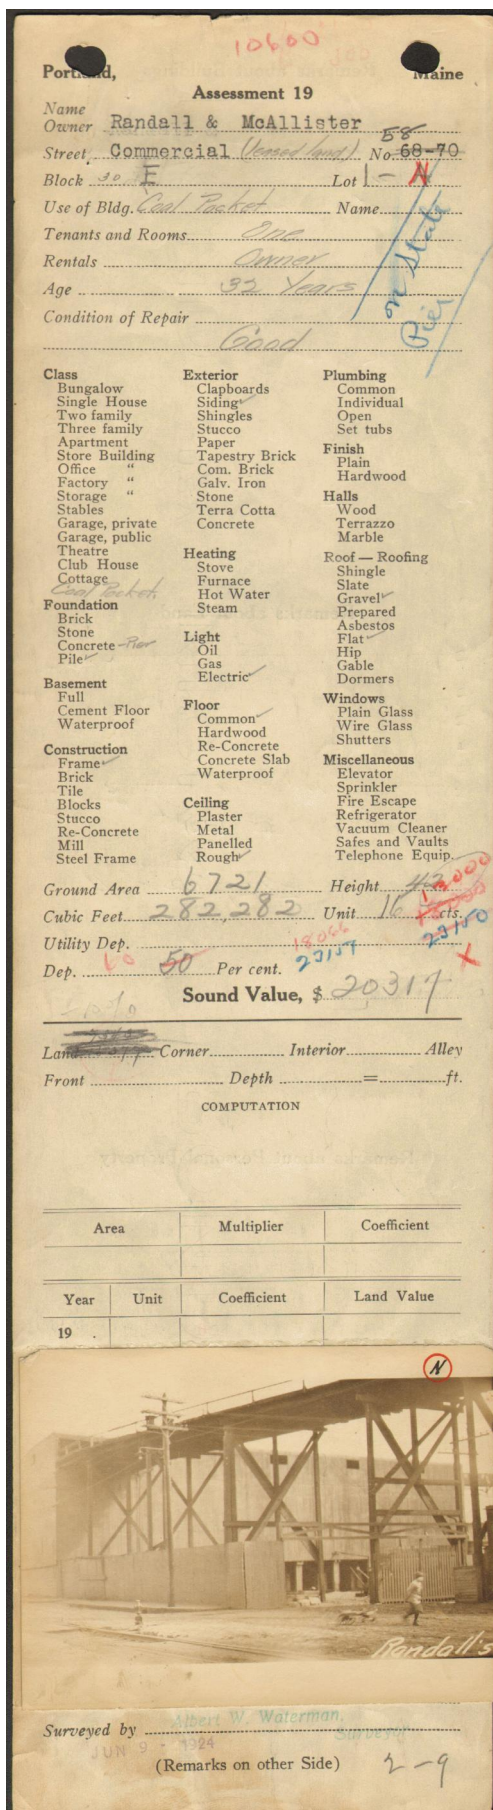 10600
Portland, Maine
Assessment 19
Name
Owner Randall & McAllister
58
Street Commercial (leased land) No 68-70
Block 30 E Lot 1 - A N
on State
Pier
Use of Bldg. Coal Pocket Name
Tenants and Rooms One
Rentals Owner
Age 32 Years
Condition of Repair
Good
Class
Bungalow
Single House
Two family
Three family
Apartment
Store Building
Office "
Factory "
Storage "
Stables
Garage, private
Garage, public
Theatre
Club House
Cottage
Coal Pocket
Foundation
Brick
Stone
Concrete - Pier
Pile ✓
Basement
Full
Cement Floor
Waterproof
Construction
Frame ✓
Brick
Tile
Blocks
Stucco
Re-Concrete
Mill
Steel Frame
Exterior
Clapboards
Siding ✓
Shingles
Stucco
Paper
Tapestry Brick
Com. Brick
Galv. Iron
Stone
Terra Cotta
Concrete
Heating
Stove
Furnace
Hot Water
Steam
Light
Oil
Gas
Electric ✓
Floor
Common ✓
Hardwood
Re-Concrete
Concrete Slab
Waterproof
Ceiling
Plaster
Metal
Panelled
Rough ✓
Plumbing
Common
Individual
Open
Set tubs
Finish
Plain
Hardwood
Halls
Wood
Terrazzo
Marble
Roof — Roofing
Shingle
Slate
Gravel ✓
Prepared
Asbestos
Flat ✓
Hip
Gable
Dormers
Windows
Plain Glass
Wire Glass
Shutters
Miscellaneous
Elevator
Sprinkler
Fire Escape
Refrigerator
Vacuum Cleaner
Safes and Vaults
Telephone Equip.
Ground Area 6721 Height 42
Cubic Feet 282,282 Unit cts.
18000
23150
Utility Dep.
18066
23157
Dep. 60 50 Per cent.
Sound Value, $ 20317
Land Corner Interior Alley
Front Depth = ft.
COMPUTATION
Area Multiplier Coefficient
Year Unit Coefficient Land Value
19 .
N
Randall's
Surveyed by Albert W. Waterman,
Surveyor
JUN 9 - 1924
(Remarks on other Side) 2-9